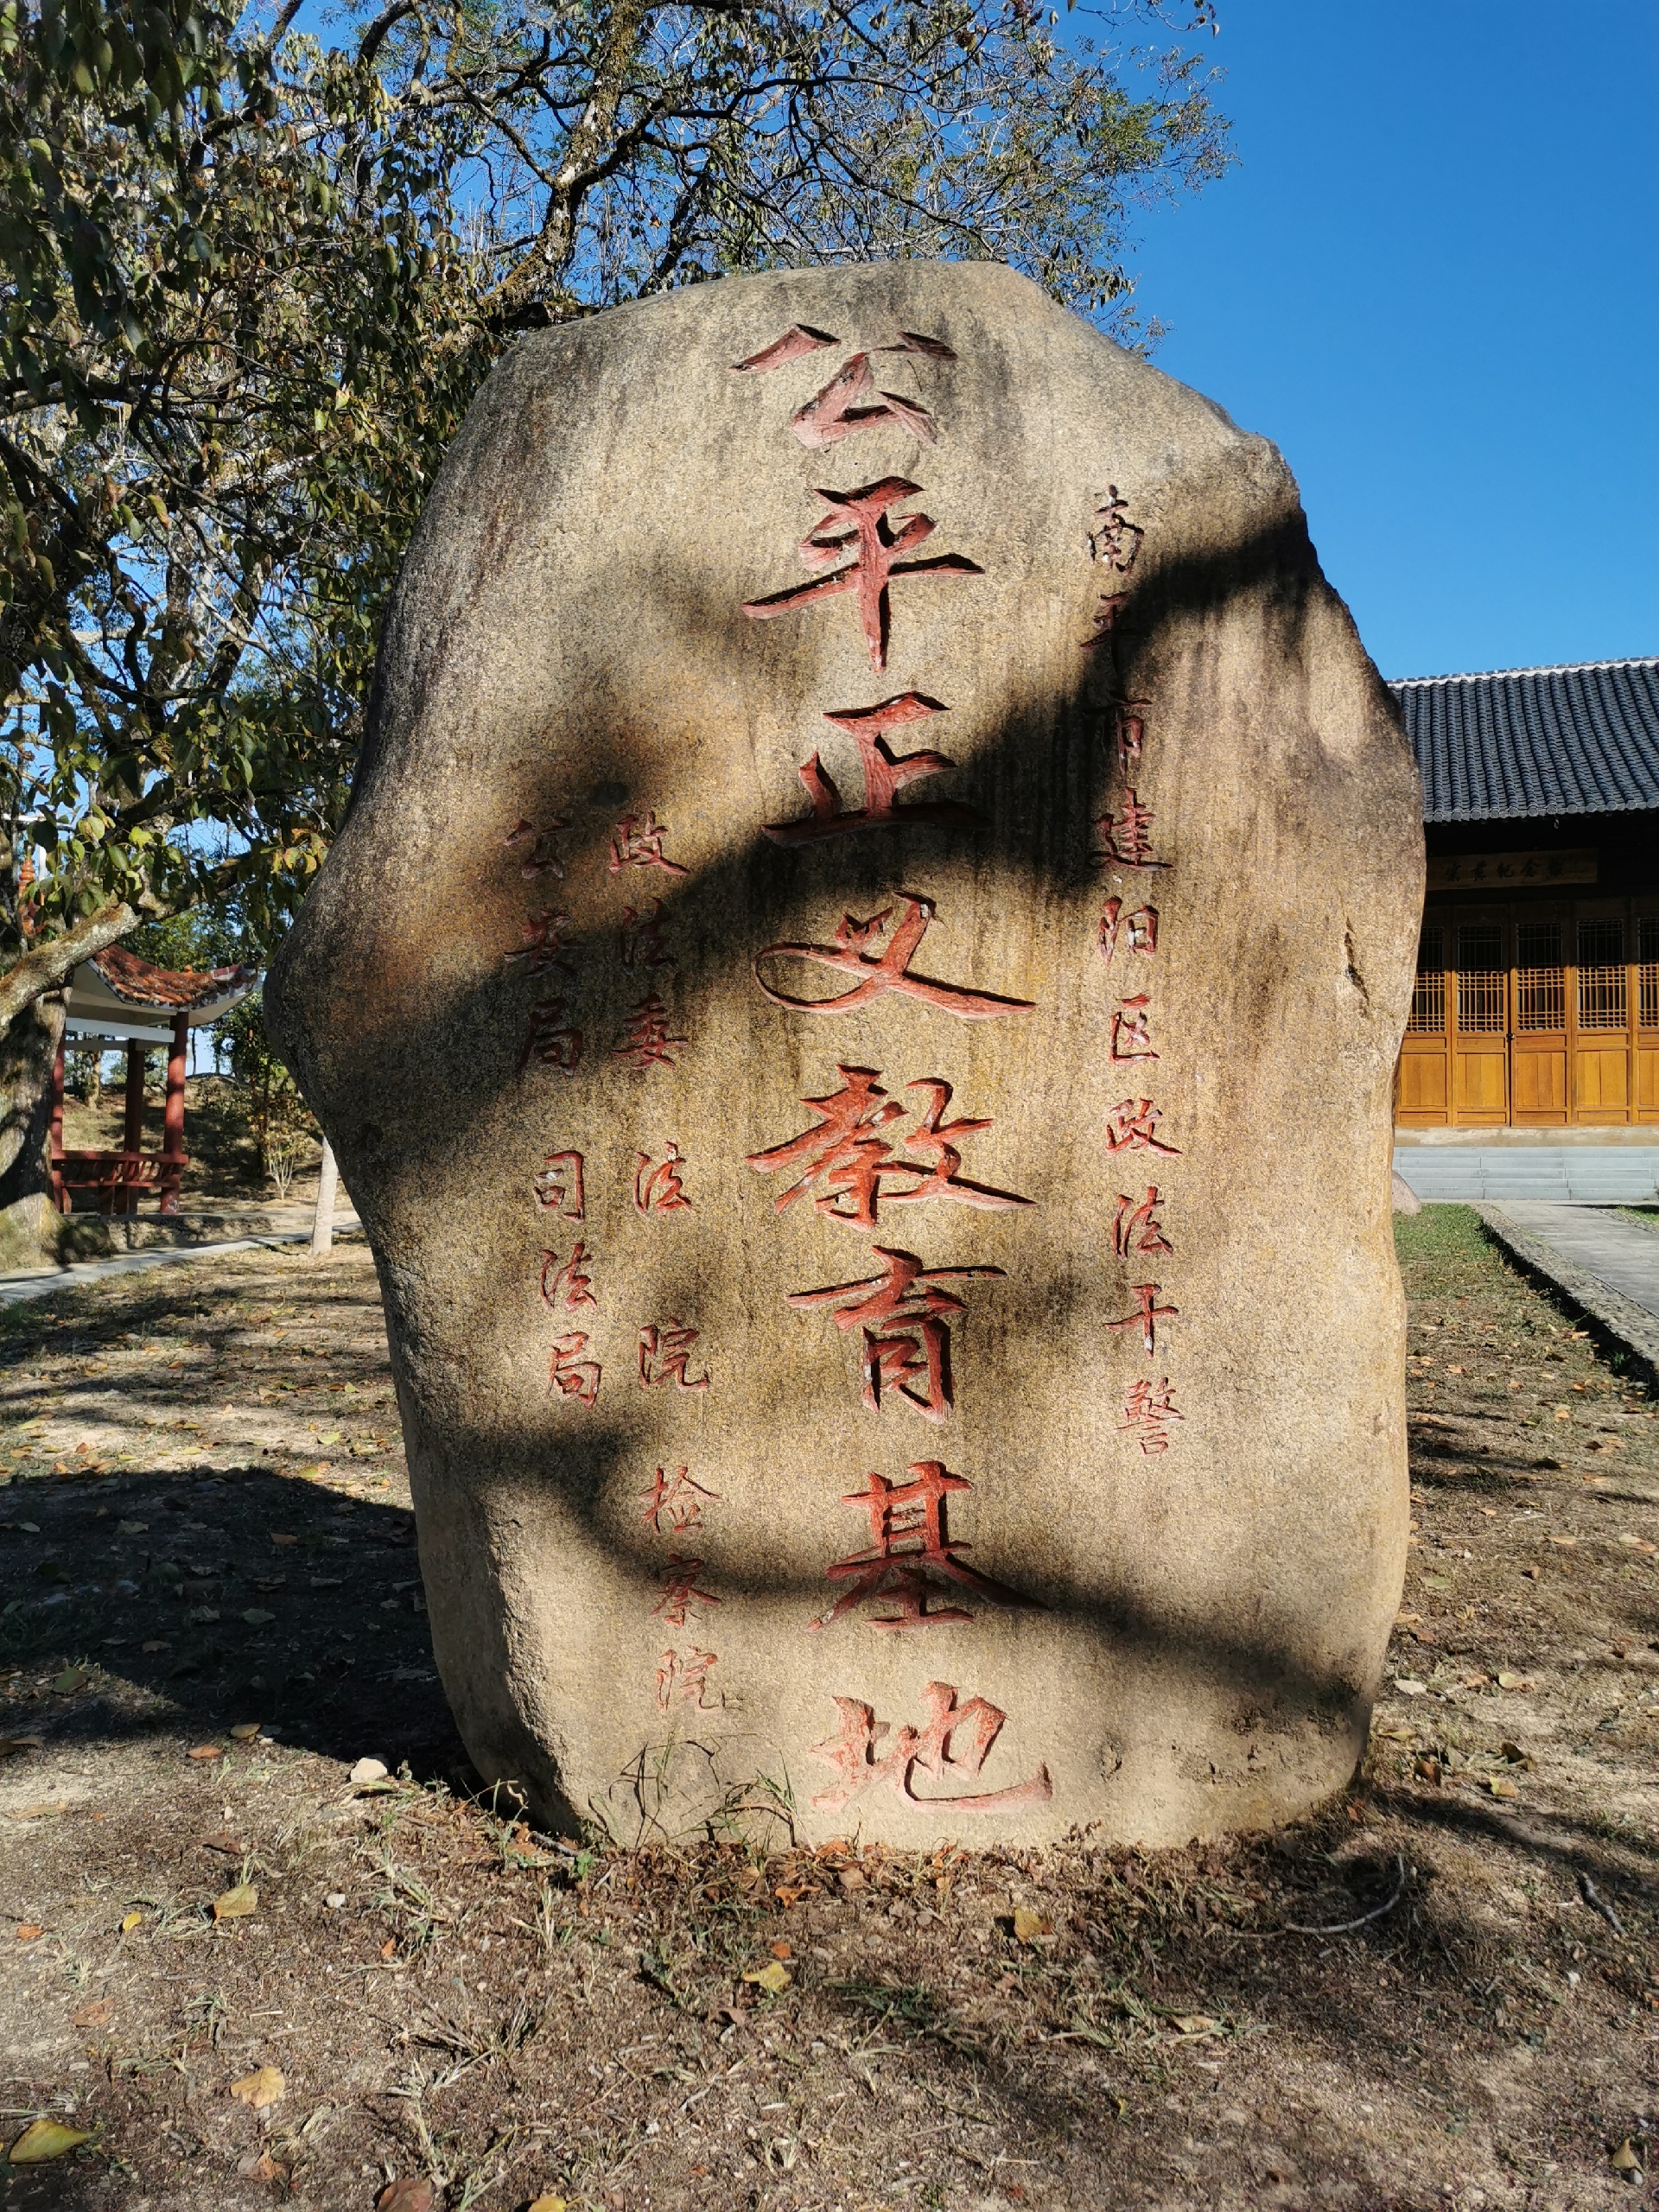 南平市建阳区政法干警
公平正义教育基地
政法委 法院 检察院
公安局 司法局
宋慈纪念馆